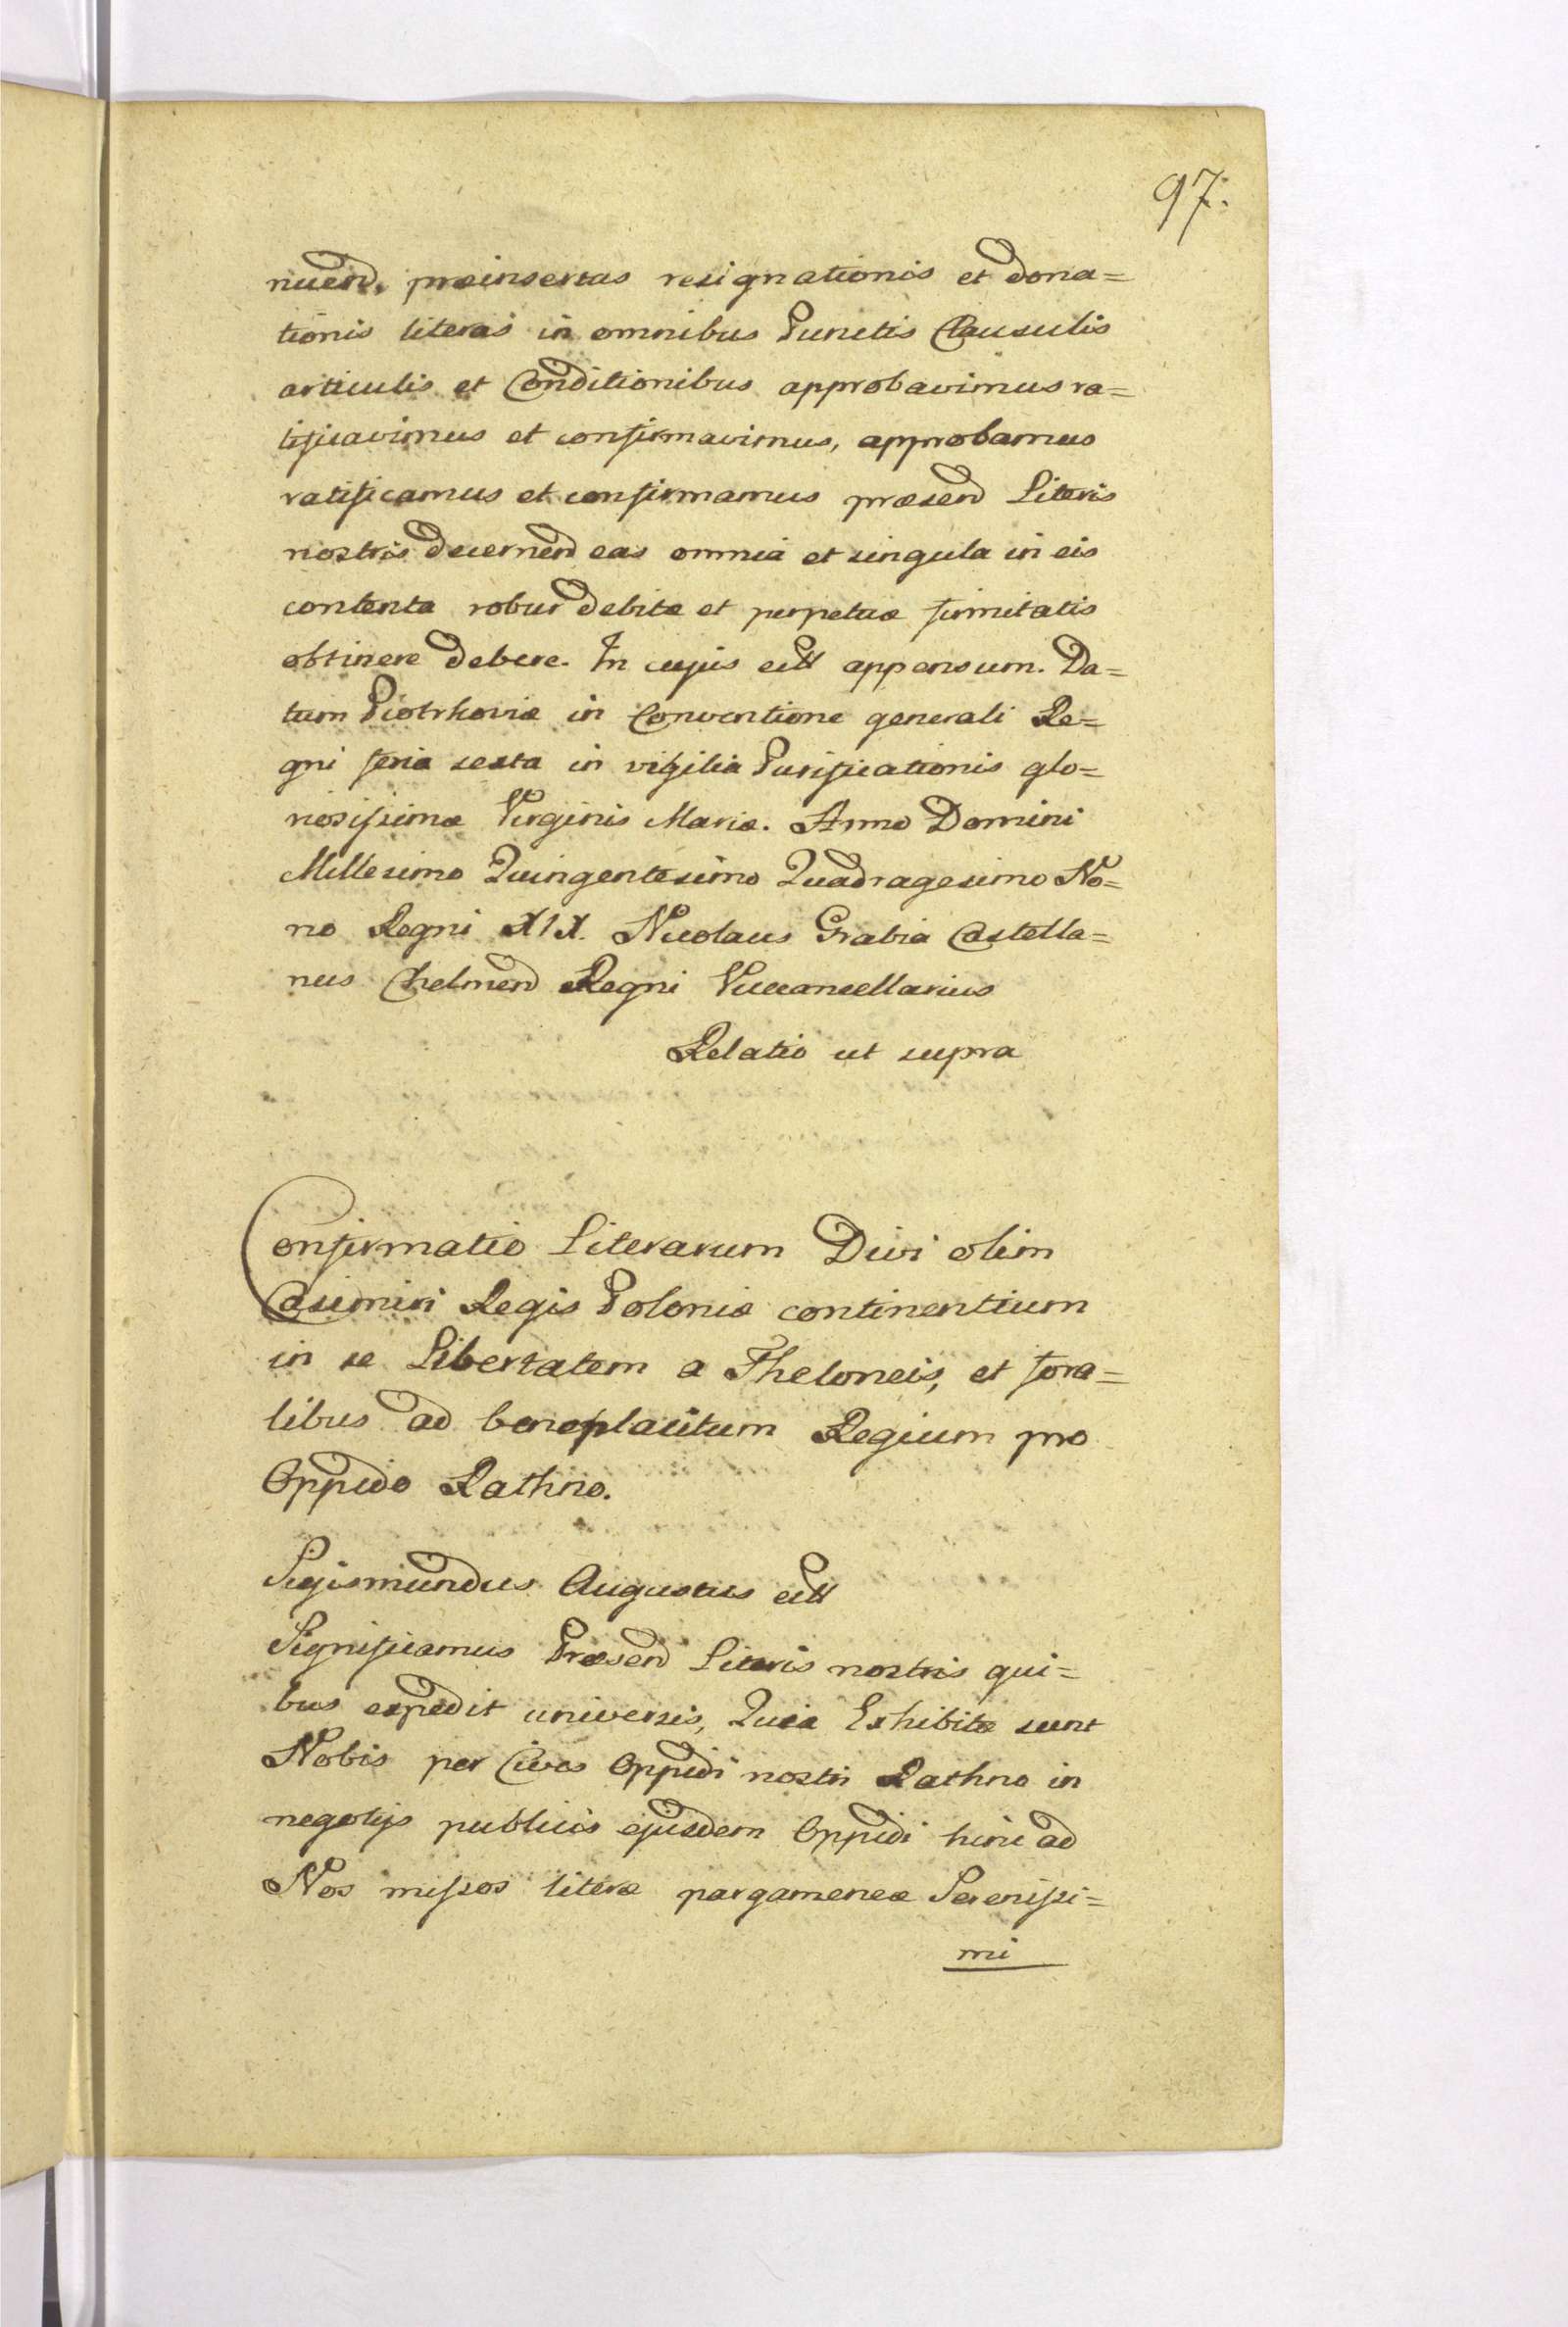 97.
nuend. præinsertas resignationis et dona=
tionis literas in omnibus Punctis Clausulis
articulis et Conditionibus approbavimus ra=
tificavimus et confirmavimus, approbamus
ratificamus et confirmamus præsend Literis
nostris decernend eas omnia et singula in eis
contenta robur debitæ et perpetuæ firmitatis
obtinere debere. In cujus ett appensum. Da=
tum Piotrkoviæ in Conventione generali Re=
gni feria sexta in vigilia Purificationis glo=
riosissimæ Virginis Mariæ. Anno Domini
Millesimo Quingentesimo Quadragesimo No=
no Regni XIX. Nicolaus Grabia Castella=
nus Chelmend Regni Vicecancellarius
Relatio ut supra
Confirmatio Literarum Divi olim
Casimiri Regis Poloniæ continentium
in se Libertatem a Theloneis, et fora=
libus ad beneplacitum Regium pro
Oppido Rathno.
Sigismundus Augustus ett
Significamus Præsend Literis nostris qui=
bus expedit universis, Quia Exhibitæ sunt
Nobis per Cives Oppidi nostri Rathno in
negotijs publicis ejusdem Oppidi huic ad
Nos missos literæ pargameneæ Serenissi=
mi